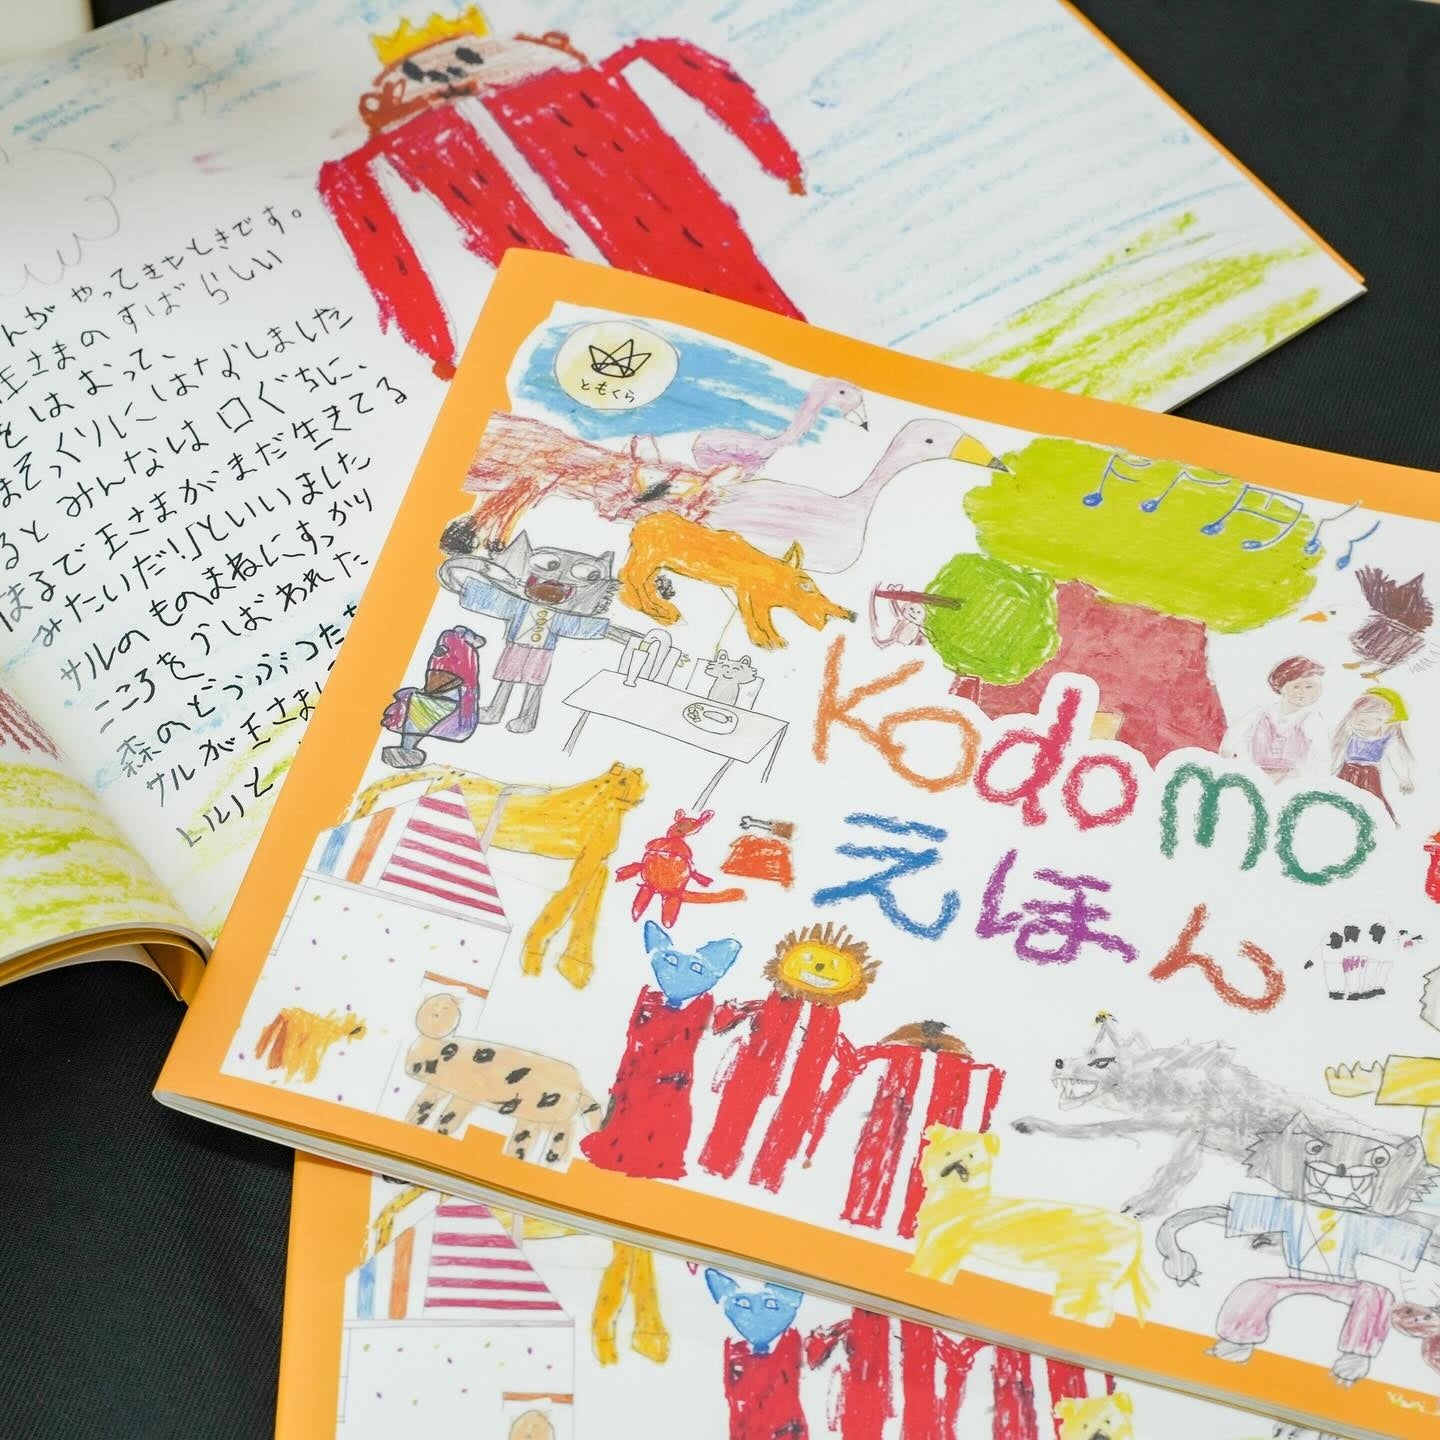 んが やってきたときです。
王さまの すばらしい
をはおって、
まそっくりに はなしました
ると みんなは 口ぐちに、
まるで王さまがまだ生きてる
みたいだ!」といいました
サルの ものまねにすっかり
こころをうばわれた
森のどうぶつたち
サルが王さま
いいと
ともくら
Kodomo
えほん